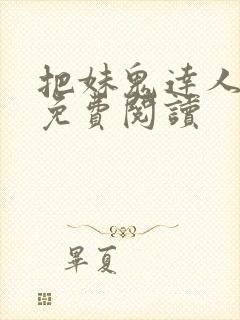 把妹鬼達人
免費閱讀
畢夏